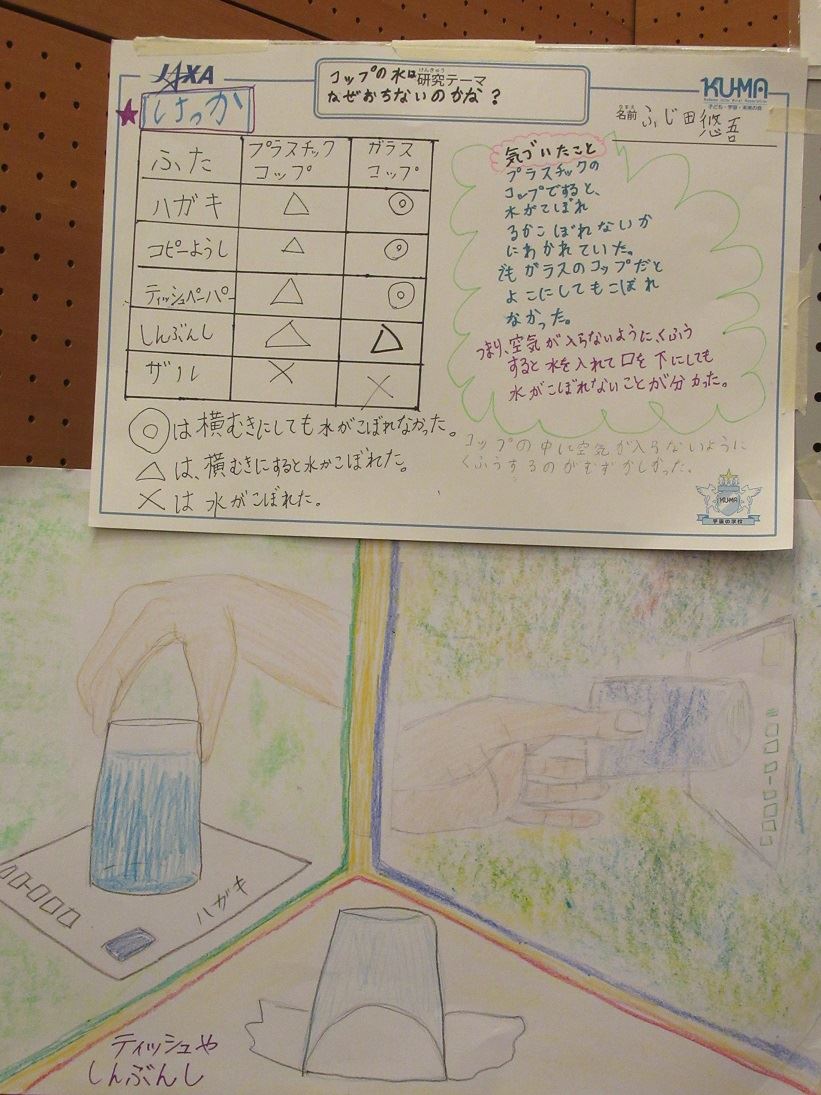 JAXA
コップの水は研究テーマ
なぜおちないのかな？
KU-MA
子ども・宇宙・未来の会
名前 ふじ田悠吾
★けっか
ふた プラスチックコップ ガラスコップ
ハガキ △ ◎
コピーようし △ ◎
ティッシュペーパー △ ◎
しんぶんし △ △
ザル × ×
◎は横むきにしても水がこぼれなかった。
△は、横むきにすると水がこぼれた。
×は水がこぼれた。
気づいたこと
プラスチックの
コップですると、
水がこぼれ
るかこぼれないか
にわかれていた。
でもガラスのコップだと
よこにしてもこぼれ
なかった。
つまり、空気が入らないように、くふう
すると水を入れて口を下にしても
水がこぼれないことが分かった。
コップの中に空気が入らないように
くふうするのがむずかしかった。
KU-MA
宇宙の学校
ハガキ
ティッシュや
しんぶんし